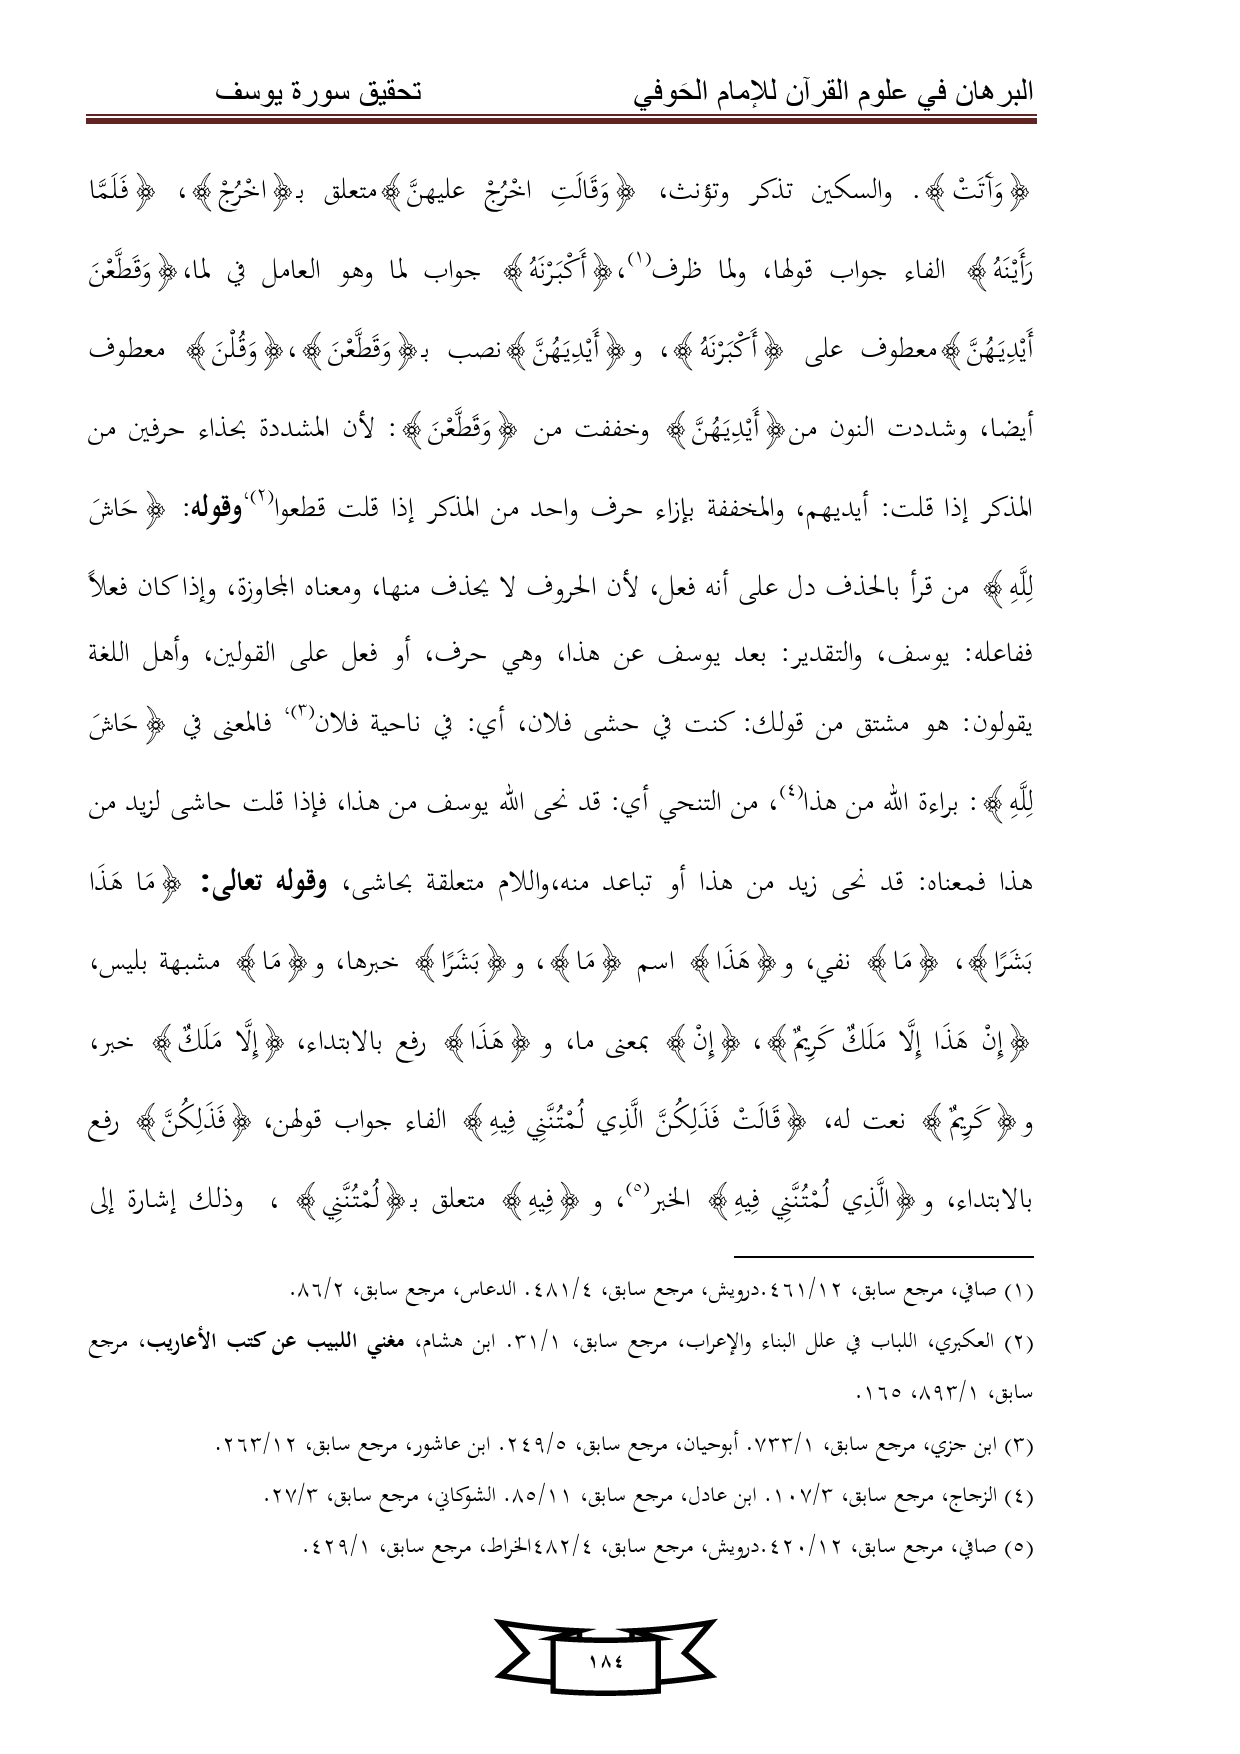 البرهان في علوم القرآن للإمام الحَوفي تحقيق سورة يوسف
﴿وَآَتَتْ﴾. والسكين تذكر وتؤنث، ﴿وَقَالَتِ اخْرُجْ عليهنَّ﴾متعلق بـ﴿اخْرُجْ﴾، ﴿فَلَمَّا
رَأَيْنَهُ﴾ الفاء جواب قولها، ولما ظرف(١)،﴿أَكْبَرْنَهُ﴾ جواب لما وهو العامل في لما،﴿وَقَطَّعْنَ
أَيْدِيَهُنَّ﴾معطوف على ﴿أَكْبَرْنَهُ﴾، و﴿أَيْدِيَهُنَّ﴾نصب بـ﴿وَقَطَّعْنَ﴾،﴿وَقُلْنَ﴾ معطوف
أيضا، وشددت النون من﴿أَيْدِيَهُنَّ﴾ وخففت من ﴿وَقَطَّعْنَ﴾: لأن المشددة بحذاء حرفين من
المذكر إذا قلت: أيديهم، والمخففة بإزاء حرف واحد من المذكر إذا قلت قطعوا(٢)،وقوله: ﴿حَاشَ
لِلَّهِ﴾ من قرأ بالحذف دل على أنه فعل، لأن الحروف لا يحذف منها، ومعناه المجاوزة، وإذا كان فعلاً
ففاعله: يوسف، والتقدير: بعد يوسف عن هذا، وهي حرف، أو فعل على القولين، وأهل اللغة
يقولون: هو مشتق من قولك: كنت في حشى فلان، أي: في ناحية فلان(٣)، فالمعنى في ﴿حَاشَ
لِلَّهِ﴾: براءة الله من هذا(٤)، من التنحي أي: قد نحى الله يوسف من هذا، فإذا قلت حاشى لزيد من
هذا فمعناه: قد نحى زيد من هذا أو تباعد منه،واللام متعلقة بحاشى، وقوله تعالى: ﴿مَا هَذَا
بَشَرًا﴾، ﴿مَا﴾ نفي، و﴿هَذَا﴾ اسم ﴿مَا﴾، و﴿بَشَرًا﴾ خبرها، و﴿مَا﴾ مشبهة بليس،
﴿إِنْ هَذَا إِلَّا مَلَكٌ كَرِيمٌ﴾، ﴿إِنْ﴾ بمعنى ما، و ﴿هَذَا﴾ رفع بالابتداء، ﴿إِلَّا مَلَكٌ﴾ خبر،
و﴿كَرِيمٌ﴾ نعت له، ﴿قَالَتْ فَذَلِكُنَّ الَّذِي لُمْتُنَّنِي فِيهِ﴾ الفاء جواب قولهن، ﴿فَذَلِكُنَّ﴾ رفع
بالابتداء، و﴿الَّذِي لُمْتُنَّنِي فِيهِ﴾ الخبر(٥)، و ﴿فِيهِ﴾ متعلق بـ﴿لُمْتُنَّنِي﴾ ، وذلك إشارة إلى
(١) صافي، مرجع سابق، ٤٦١/١٢.درويش، مرجع سابق، ٤٨١/٤. الدعاس، مرجع سابق، ٨٦/٢.
(٢) العكبري، اللباب في علل البناء والإعراب، مرجع سابق، ٣١/١. ابن هشام، مغني اللبيب عن كتب الأعاريب، مرجع
سابق، ٨٩٣/١، ١٦٥.
(٣) ابن جزي، مرجع سابق، ٧٣٣/١. أبوحيان، مرجع سابق، ٢٤٩/٥. ابن عاشور، مرجع سابق، ٢٦٣/١٢.
(٤) الزجاج، مرجع سابق، ١٠٧/٣. ابن عادل، مرجع سابق، ٨٥/١١. الشوكاني، مرجع سابق، ٢٧/٣.
(٥) صافي، مرجع سابق، ٤٢٠/١٢.درويش، مرجع سابق، ٤٨٢/٤الخراط، مرجع سابق، ٤٢٩/١.
١٨٤